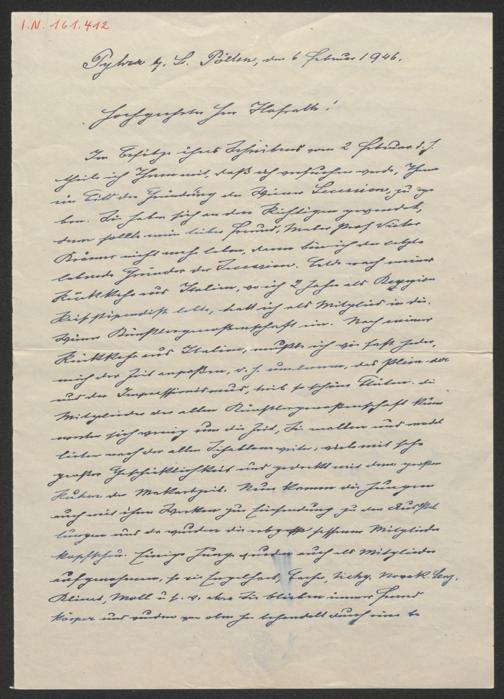 I.N. 161.412
Pyhra b. St. Pölten, den 6 Februar 1946.
Hochgeehrter Herr Hofrath!
Im Besitze ihres Schreibens vom 2 Februar d. J.
theile ich Ihnen mit, daß ich versuchen werde, Ihnen
ein Bild der Gründung der Wiener Secession, zu ge-
ben. Sie haben sich an den Richtigen gewendet,
denn sollte mein lieber Freund, Maler, Prof Victor
Krämer nicht mehr leben, dann bin ich der letzte
lebende Gründer der Secession. Bald nach meiner
Rückkehr aus Italien, wo ich 2 Jahre als
lebte, trat ich als Mitglied in die
Wiener Künstlergenossenschaft ein. Nach meiner
Rückkehr aus Italien, mußte ich wie fast jeder,
mich der Zeit anpaßen, d. h. umlernen, das Plein air
und der Impressionismus, trieb so schöne Blüten. die
Mitglieder der alten Künstlergenossenschaft küm-
merten sich wenig um die Zeit, Sie malten und
lieber nach der alten weiter, viele mit sehr
großer Geschicklichkeit und gedeckt mit dem großen
der Makartzeit. Nun kamen die Jungen
auch mit ihren Werken zur Einsendung zu den Ausstel-
lungen und da wurden die Mitglieder
kopfscheu. Einige Junge wurden auch als Mitglieder
aufgenommen, so wie Engelhart, Bacher, Tichy, Novak,
Klimt, Moll u. s. w. aber Sie blieben immer Fremd-
körper und wurden von oben her behandelt durch eine